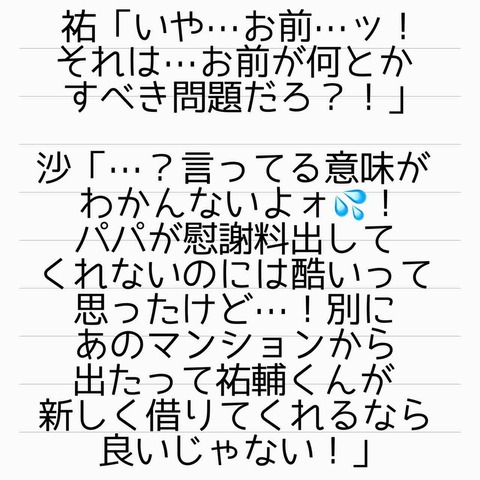 祐「いや…お前…ッ！
それは…お前が何とか
すべき問題だろ？！」
沙「…？言ってる意味が
わかんないよォ💦！
パパが慰謝料出して
くれないのには酷いって
思ったけど…！別に
あのマンションから
出たって祐輔くんが
新しく借りてくれるなら
良いじゃない！」